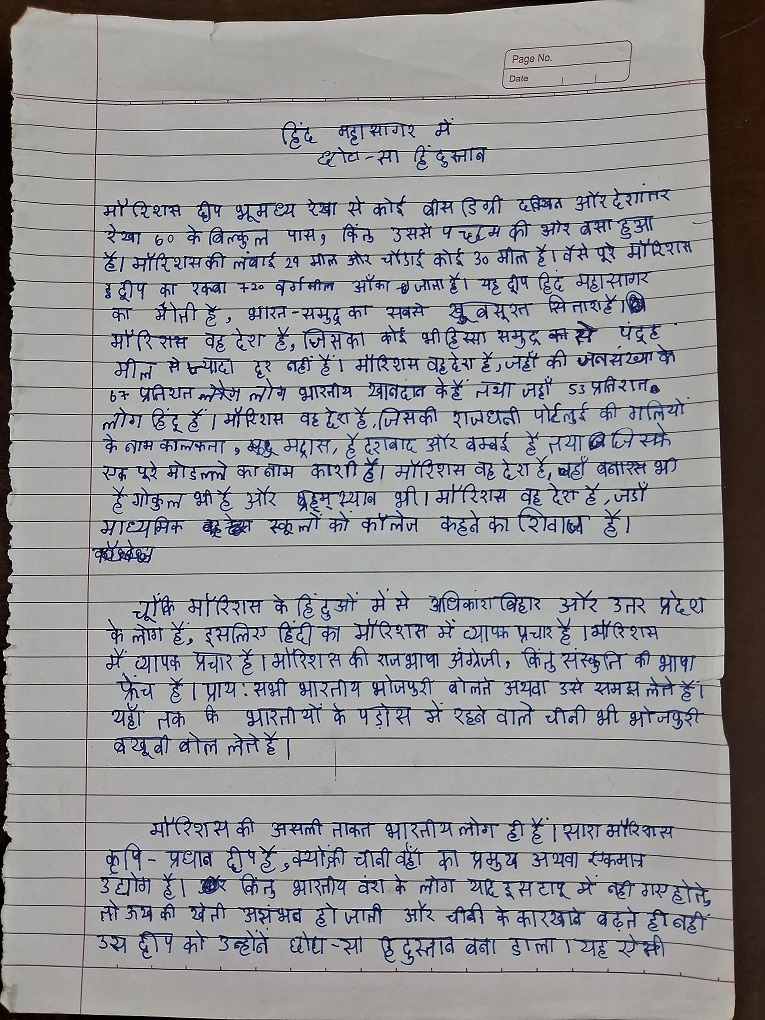 Page No.
Date
हिंद महासागर में
छोटा-सा हिंदुस्तान
मॉरिशस द्वीप भूमध्य रेखा से कोई बीस डिग्री दक्षिण और देशांतर
रेखा 60 के बिल्कुल पास, किंतु उससे पच्छिम की ओर बसा हुआ
है। मॉरिशस की लंबाई 29 मील और चौड़ाई कोई 30 मील है। वैसे पूरे मॉरिशस
द्वीप का रकबा 720 वर्गमील आँका जाता है। यह द्वीप हिंद महासागर
का मोती है, भारत-समुद्र का सबसे खूबसूरत सितारा है।
मॉरिशस वह देश है, जिसका कोई भी हिस्सा समुद्र से पंद्रह
मील से ज्यादा दूर नहीं है। मॉरिशस वह देश है, जहाँ की जनसंख्या के
67 प्रतिशत लोग भारतीय खानदान के हैं तथा जहाँ 53 प्रतिशत
लोग हिंदू हैं। मॉरिशस वह देश है, जिसकी राजधानी पोर्टलुई की गलियों
के नाम कलकता, मद्रास, हैदराबाद और बम्बई हैं तथा जिसके
एक पूरे मोहल्ले का नाम काशी है। मॉरिशस वह देश है, जहाँ बनारस भी
है गोकुल भी है और ब्रह्मस्थान भी। मॉरिशस वह देश है, जहाँ
माध्यमिक स्कूलों को कॉलेज कहने का रिवाज है।
चूँकि मॉरिशस के हिंदुओं में से अधिकांश बिहार और उत्तर प्रदेश
के लोग हैं, इसलिए हिंदी का मॉरिशस में व्यापक प्रचार है। मॉरिशस
में व्यापक प्रचार है। मॉरिशस की राजभाषा अंग्रेजी, किंतु संस्कृति की भाषा
फ्रेंच है। प्राय: सभी भारतीय भोजपुरी बोलते अथवा उसे समझ लेते हैं।
यहाँ तक कि भारतीयों के पड़ोस में रहने वाले चीनी भी भोजपुरी
बखूबी बोल लेते है।
मॉरिशस की असली ताकत भारतीय लोग ही हैं। सारा मॉरिशस
कृषि - प्रधान द्वीप है, क्योंकी चीनी वहाँ का प्रमुख अथवा एकमात्र
उद्योग है। किंतु भारतीय वंश के लोग यदि इस टापू में नही गए होते,
तो ऊख की खेती असंभव हो जाती और चीनी के कारखाने बढ़ते ही नहीं
उस द्वीप को उन्होंने छोटा-सा हिंदुस्तान बना डाला। यह ऐसी